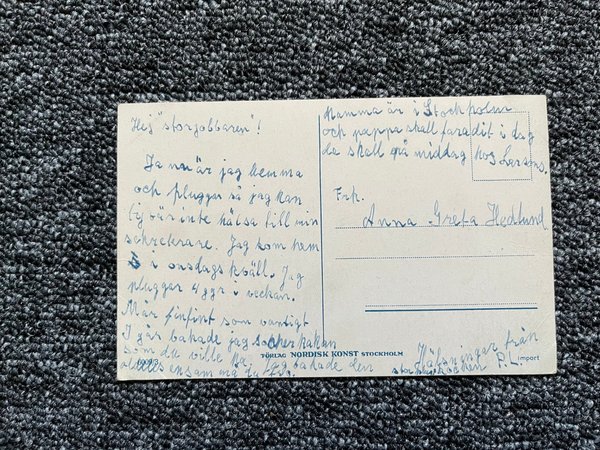 Hej "storjobbaren"!
Ja nu är jag hemma
och pluggar så jag kan
inte hälsa till min
sekreterare. Jag kom hem
i onsdags kväll. Jag
pluggar 4 ggr i veckan.
Mår finfint som vanligt
I går bakade jag sockerkakan
som du ville ha. Jag bakade den
alldeles ensam
Mamma är i Stockholm
och pappa skall fara dit i dag
de skall på middag hos Larsons.
Frk.
Anna-Greta Hedlund
Hälsningar från
P.L.
FÖRLAG NORDISK KONST STOCKHOLM
Import